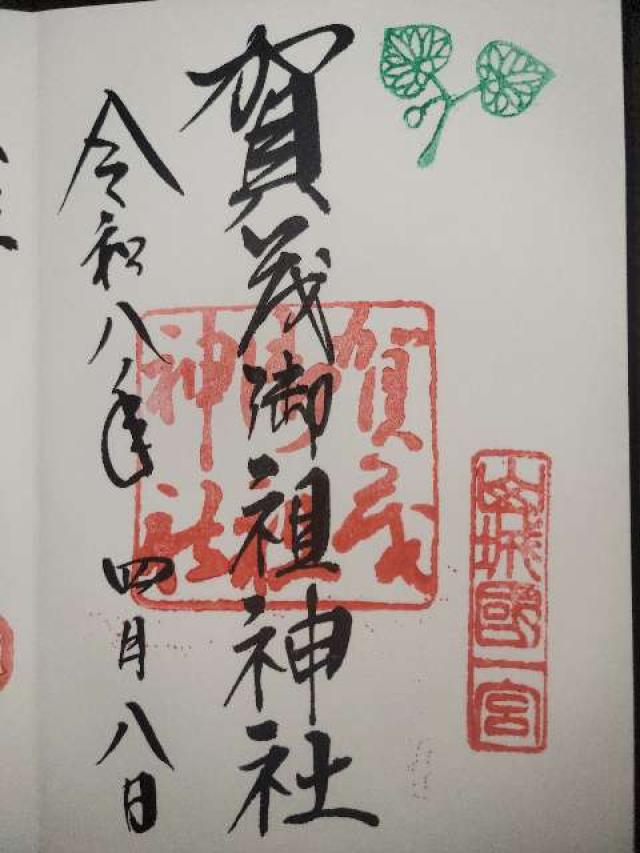 山城國一宮
賀茂御祖神社
賀茂
御祖
神社
令和八年四月八日